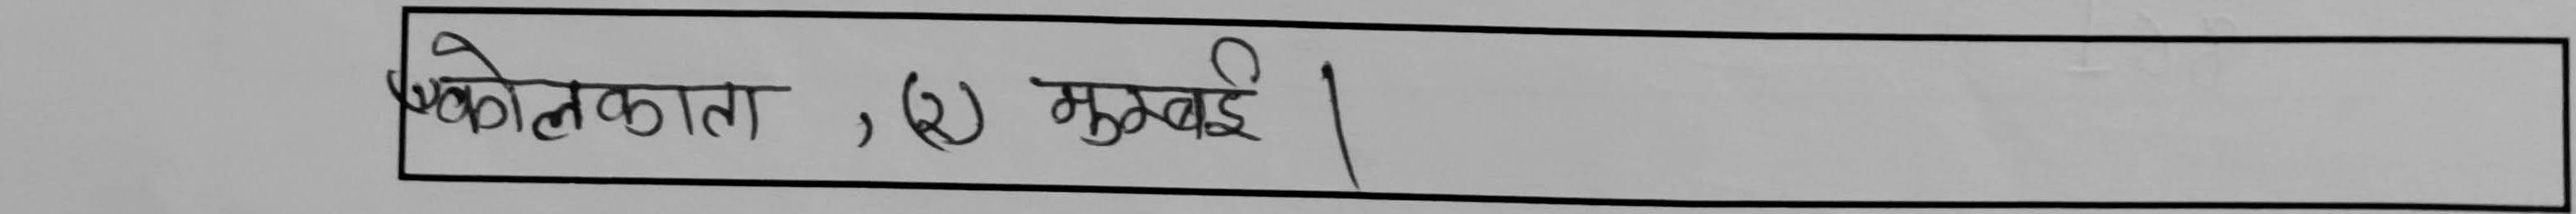 कोलकाता , (२) मुम्बई |